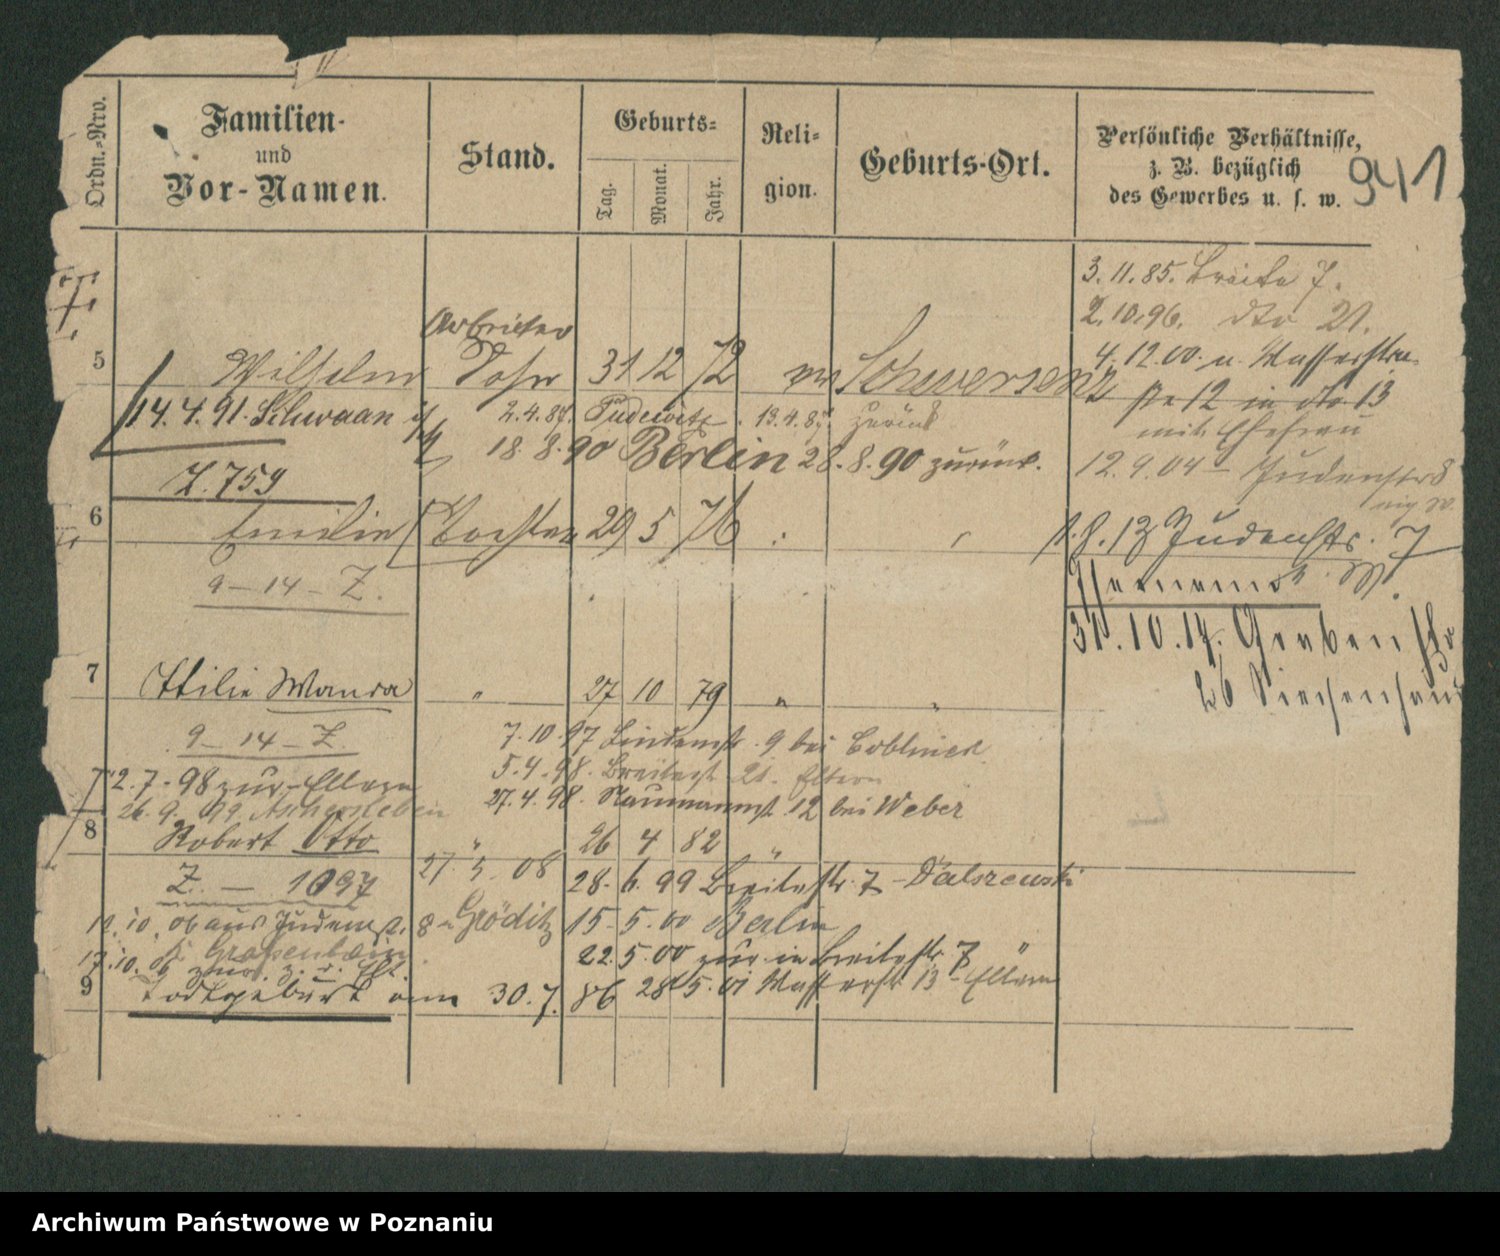 Ordn.-Nro.
Familien-
und
Vor-Namen.
Stand.
Geburts=
Tag.
Monat.
Jahr.
Reli=
gion.
Geburts-Ort.
Persönliche Verhältnisse,
z. B. bezüglich
des Gewerbes u. s. w.
941
3. 11. 85. Breite 7.
2. 10. 96. dto 21.
Arbeiter
5 Wilhelm Sohn 31 12 72 Schwersenz
4. 12. 00. Wasserstra
ße 12 in dto 13
mit Ehefrau
14. 4. 91. Schwaan
2. 4. 87. Pudewitz. 13. 4. 87. zurück
18. 8. 90 Berlin 28. 8. 90 zurück.
12. 9. 04 - Judenstr 8
Z. 759
6 Emilie Tochter 29 5 76
1. 8. 13 Judenstr. 7
9 - 14 - Z.
31. 10. 14. Grabenstr
26 Siechenhaus
7 Ottilie Wanda " 27 10 79 " "
9 - 14 - Z.
7. 10. 97 Lindenstr. 9 bei
5. 4. 98. Breitestr 21. Eltern
12. 7. 98 zur. Eltern
27. 4. 98. Naumannst. 12 bei Weber
26. 9. 99. Aschersleben
8 Robert Otto " 26 4 82 "
27. 5. 08
Z. — 1097
28. 6. 99 Breitestr. 7 -
8 Gröditz
15. 5. 00 Berlin
22. 5. 00 zur. in Breitestr. 7
9 Todtgeburt am 30. 7. 86
28. 5. 01 Wasserst. 13 - Eltern
Archiwum Państwowe w Poznaniu